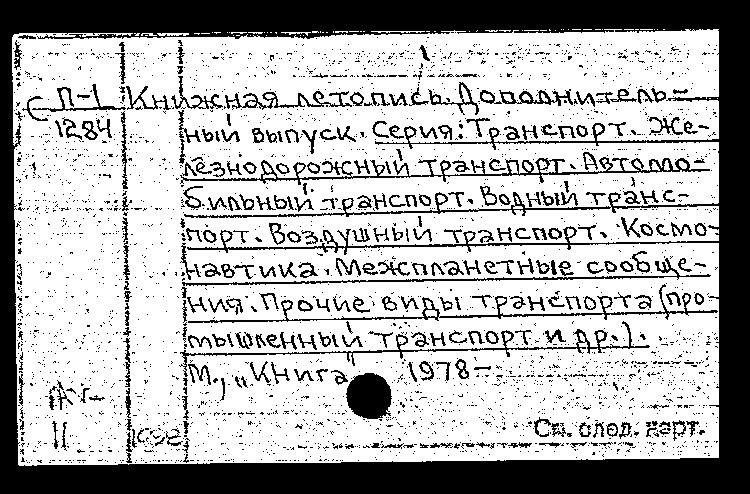 П-1 Книжная летопись. Дополнитель-
1284 ный выпуск. Серия: Транспорт. Же-
лезнодорожный транспорт. Автомо-
бильный транспорт. Водный транс-
порт. Воздушный транспорт. Космо-
навтика. Межпланетные сообще-
ния. Прочие виды транспорта (про-
мышленный транспорт и др.).
М., „Книга" 1978–
II
См. след. карт.